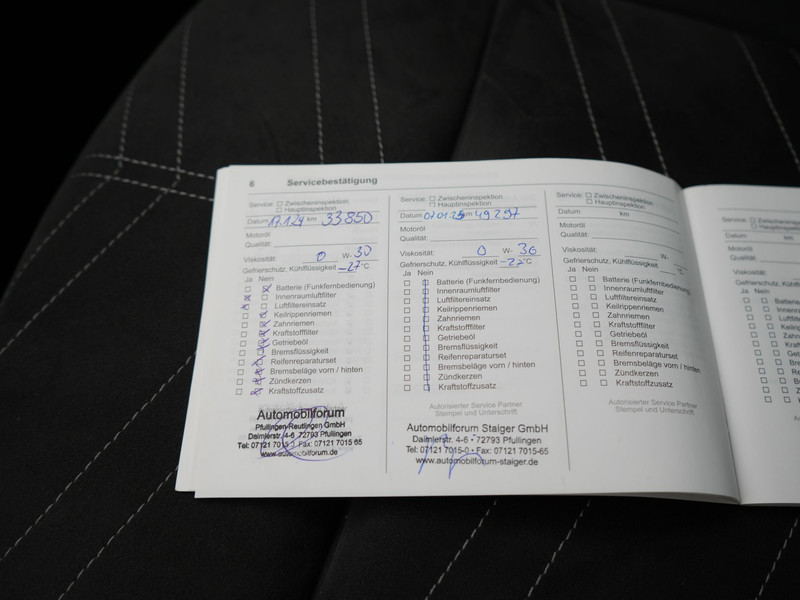 6 Servicebestätigung
Service: Zwischeninspektion
Hauptinspektion
Datum 17.1.24 km 33850
Motoröl
Qualität:
Viskosität: 0 W- 30
Gefrierschutz, Kühlflüssigkeit -27 °C
Ja Nein
Batterie (Funkfernbedienung)
Innenraumluftfilter
Luftfiltereinsatz
Keilrippenriemen
Zahnriemen
Kraftstofffilter
Getriebeöl
Bremsflüssigkeit
Reifenreparaturset
Bremsbeläge vorn / hinten
Zündkerzen
Kraftstoffzusatz
Automobilforum
Pfullingen-Reutlingen GmbH
Daimlerstr. 4-6 72793 Pfullingen
Tel: 07121 7015-0 Fax: 07121 7015 65
www.automobilforum.de
Service: Zwischeninspektion
Hauptinspektion
Datum 07.01.25 km 49297
Motoröl
Qualität:
Viskosität: 0 W- 30
Gefrierschutz, Kühlflüssigkeit -22 °C
Ja Nein
Batterie (Funkfernbedienung)
Innenraumluftfilter
Luftfiltereinsatz
Keilrippenriemen
Zahnriemen
Kraftstofffilter
Getriebeöl
Bremsflüssigkeit
Reifenreparaturset
Bremsbeläge vorn / hinten
Zündkerzen
Kraftstoffzusatz
Autorisierter Service Partner
Stempel und Unterschrift
Automobilforum Staiger GmbH
Daimlerstr. 4-6 • 72793 Pfullingen
Tel: 07121 7015-0 • Fax: 07121 7015-65
www.automobilforum-staiger.de
Service: Zwischeninspektion
Hauptinspektion
Datum km
Motoröl
Qualität:
Viskosität: W-
Gefrierschutz, Kühlflüssigkeit °C
Ja Nein
Batterie (Funkfernbedienung)
Innenraumluftfilter
Luftfiltereinsatz
Keilrippenriemen
Zahnriemen
Kraftstofffilter
Getriebeöl
Bremsflüssigkeit
Reifenreparaturset
Bremsbeläge vorn / hinten
Zündkerzen
Kraftstoffzusatz
Autorisierter Service Partner
Stempel und Unterschrift
Service:
Datum km
Motoröl
Qualität:
Viskosität:
Gefrierschutz,
Ja Nein